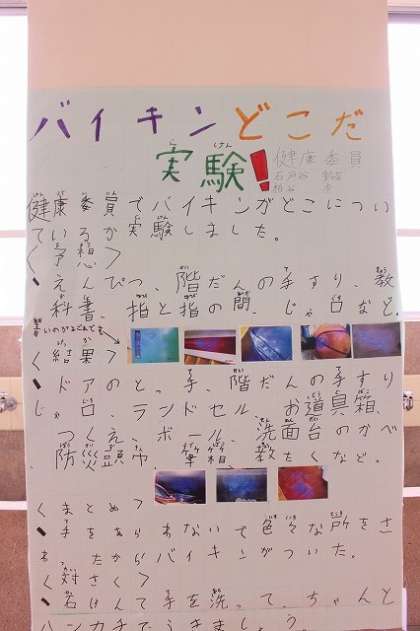 バイキンどこだ
実験!
健康委員
健康委員でバイキンがどこについ
ているか実験しました。
<予想>
・えんぴつ、階だんの手すり、教
科書、指と指の間、じゃ口など。
青いのがばいきんです
<結果>
・ドアのとっ手、階だんの手すり
じゃ口、ランドセル、お道具箱、
つくえ、ボール、洗面台のかべ
、防災頭巾、筆箱、教たくなど。
<まとめ>
・手をあらわないで色々な所をさ
わったからバイキンがついた。
<対さく>
・石けんで手を洗って、ちゃんと
ハンカチでふきましょう。